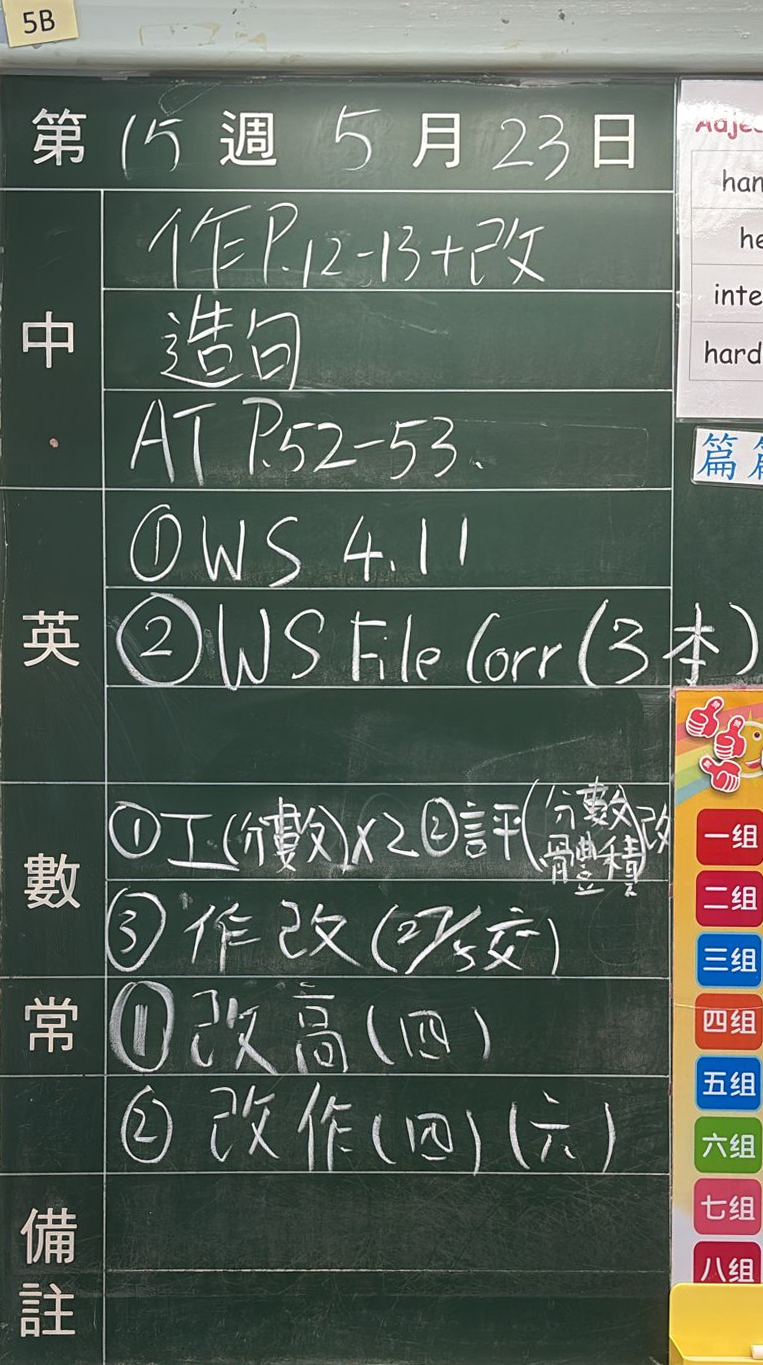 5B
第 15 週 5 月 23 日
中
作P.12-13+改
造句
AT P.52-53.
英
① WS 4.11
② WS File Corr (3本)
數
① 工(分數)x2 ② 評(分數 體積)改
③ 作改 (27/5交)
常
① 改高(四)
② 改作(四)(六)
備註
Adjec
han
he
inte
hard
篇
一组
二组
三组
四组
五组
六组
七组
八组